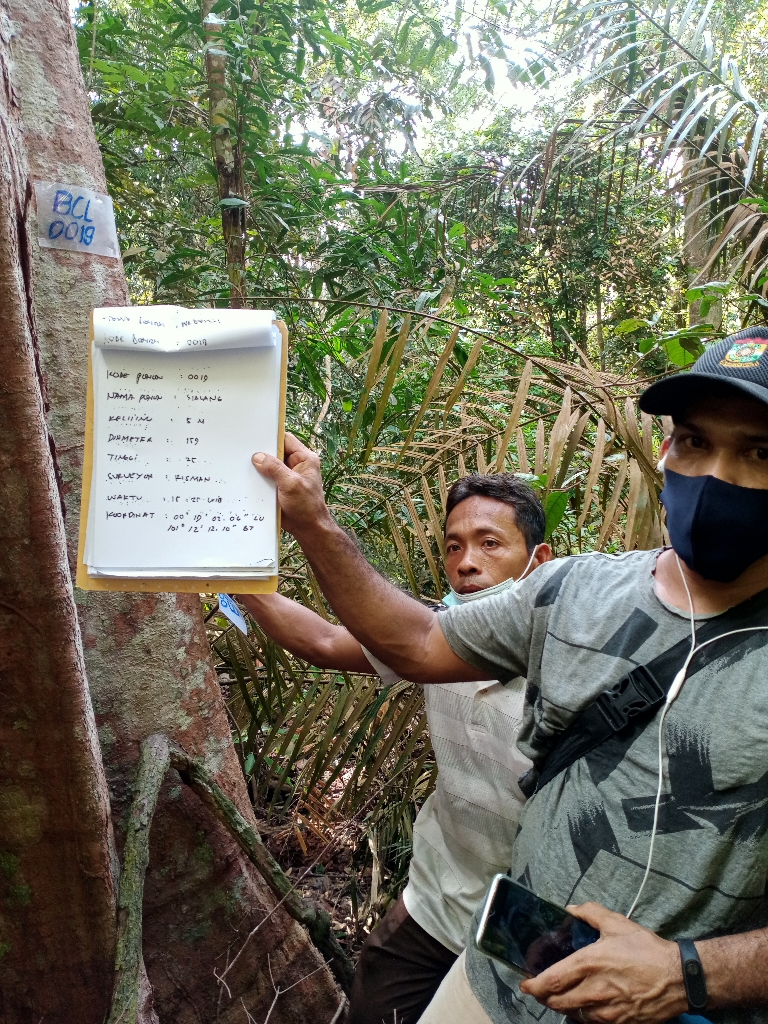 BCL
0019
KODE : 0019
KODE POHON : 0019
NAMA POHON : SIALANG
KELILING : 5 M
DIAMETER : 159
TINGGI : 25
SURVEYOR : RISMAN
WAKTU : 15:25 WIB
KOORDINAT : 00° 19' 02.06"
101° 12' 12.10" 67